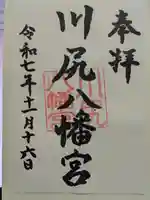 奉拝
川尻八幡宮
令和七年十一月十六日